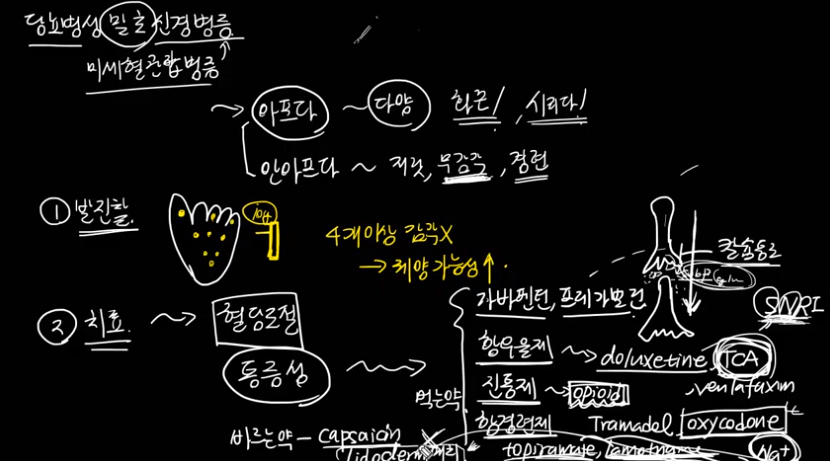 당뇨병성 말초신경병증
미세혈관합병증
아프다 ~ 다양 화끈!, 시리다!
안아프다 ~ 저릿, 무감각, 경련
① 발진찰
10g
4개이상 감각X
→ 궤양가능성↑.
칼슘통로
② 치료
혈당조절
통증성
먹는약
가바펜틴, 프레가발린
SNRI
항우울제 doluxetine, TCA
, venlafaxim
진통제 opioid
Tramadol oxycodone
항경련제
topiramate,
Na+
바르는약 - capsaicin
lidoderm